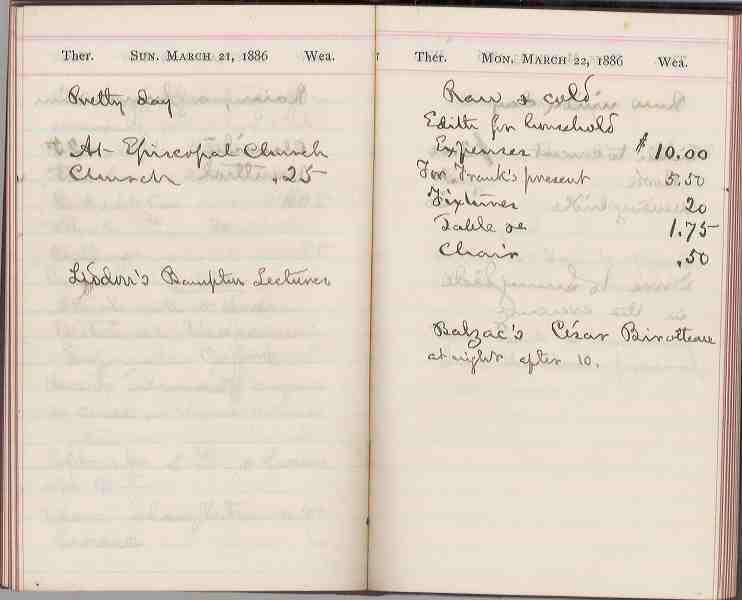 Ther. SUN. MARCH 21, 1886 Wea.
Pretty day
At Episcopal Church
Church .25
Bampton Lectures
Ther. MON. MARCH 22, 1886 Wea.
Raw & cold
Edith for household
Expenses $10.00
For Frank's present 5.50
Fixtures 20
Table 1.75
Chair .50
Balzac's César Birotteau
at night after 10.